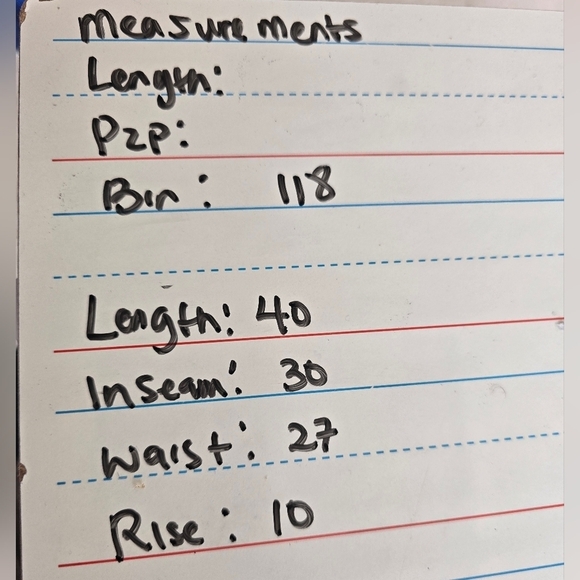 Measurements
Length:
P2P:
Bin: 118
Length: 40
Inseam: 30
Waist: 27
Rise: 10